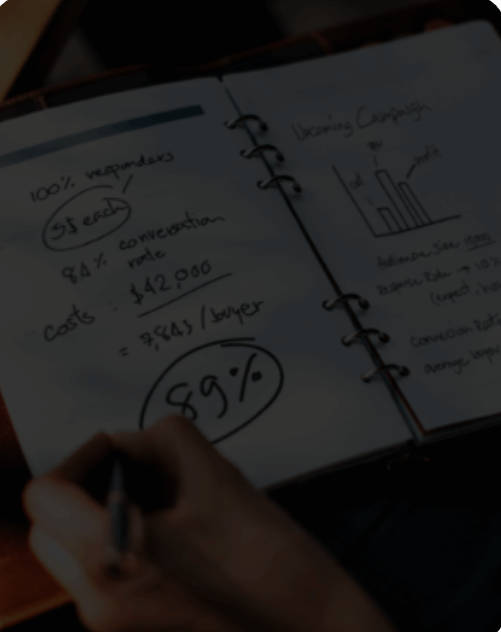 100% responders
5$ each
84% conversation
rate
costs $42,000
= 7,843 /buyer
89%
Upcoming Campaign
cost
profit
Audience Size
Response Rate → 10%
(expect
conversion Rate
average